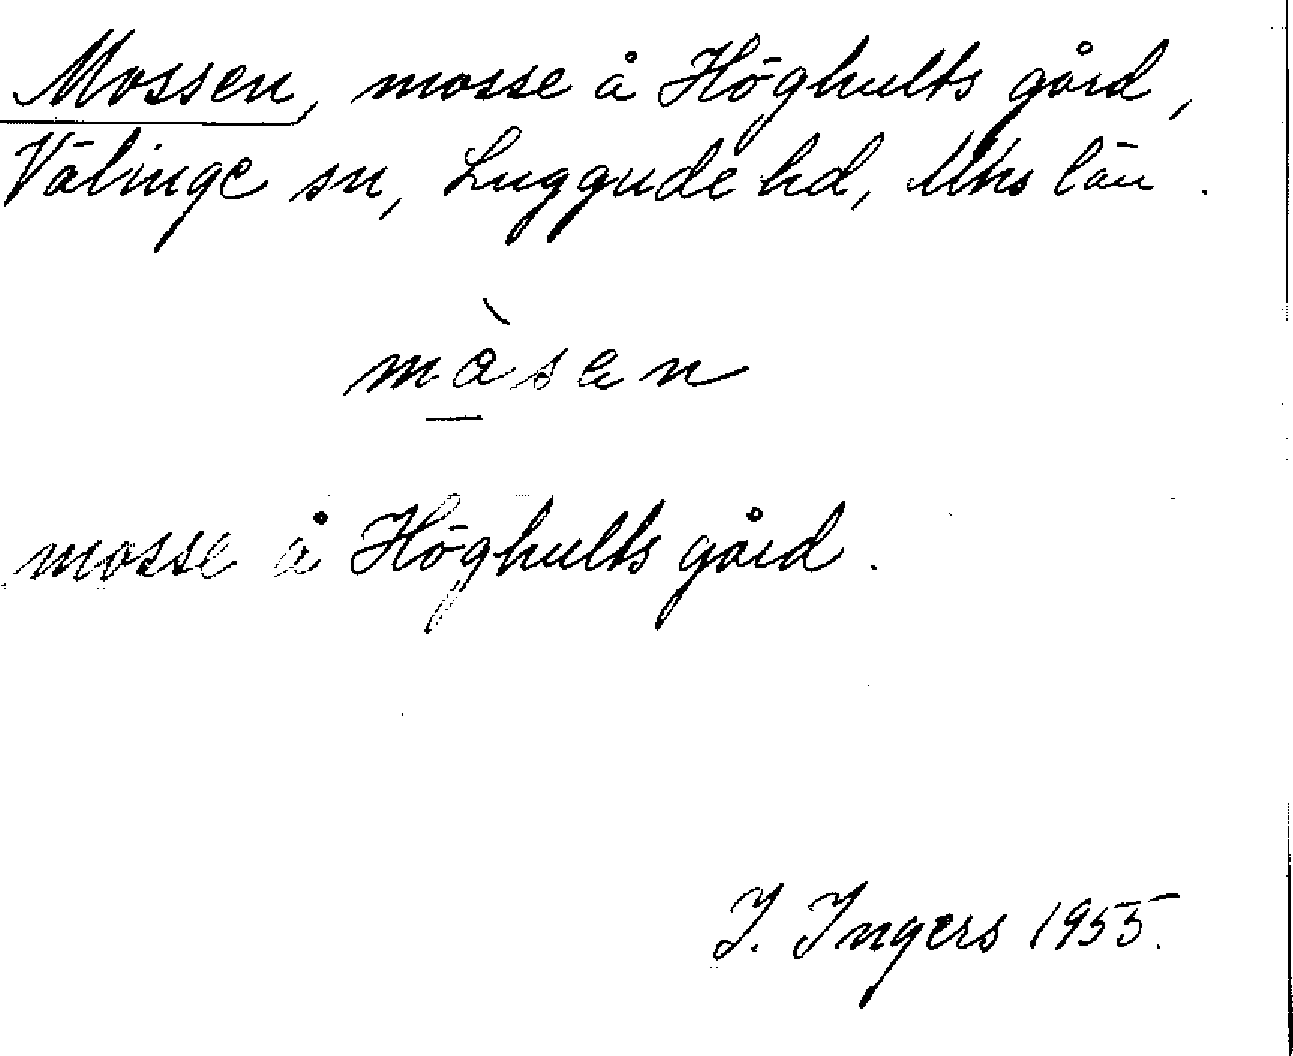 Mossen, mosse å Höghults gård,
Välinge sn, Luggude hd, Mhs län.
måsen
mosse å Höghults gård.
I. Ingers 1955.